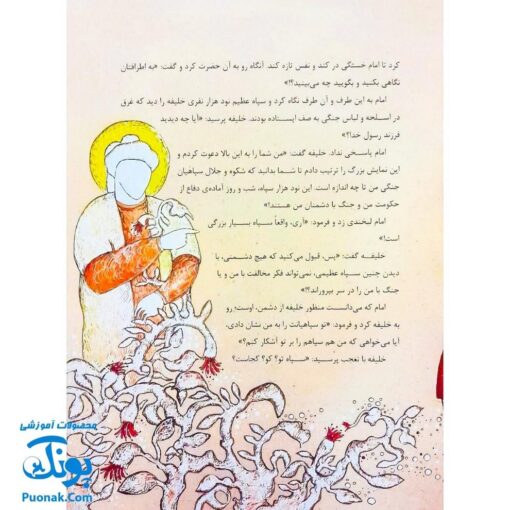 کرد تا امام خستگی در کند و نفس تازه کند. آنگاه رو به آن حضرت کرد و گفت: «به اطرافتان
نگاهی بکنید و بگویید چه می‌بینید؟!»
امام به این طرف و آن طرف نگاه کرد و سپاه عظیم نود هزار نفری خلیفه را دید که غرق
در اسلحه و لباس جنگی به صف ایستاده بودند. خلیفه پرسید: «آیا چه دیدید
فرزند رسول خدا؟»
امام پاسخی نداد. خلیفه گفت: «من شما را به این بالا دعوت کردم و
این نمایش بزرگ را ترتیب دادم تا شما بدانید که شکوه و جلال سپاهیان
جنگی من تا چه اندازه است. این نود هزار سپاه، شب و روز آماده‌ی دفاع از
حکومت من و جنگ با دشمنان من هستند!»
امام لبخندی زد و فرمود: «آری، واقعاً سپاه بسیار بزرگی
است!»
خلیفه گفت: «پس، قبول می‌کنید که هیچ دشمنی، با
دیدن چنین سپاه عظیمی، نمی‌تواند فکر مخالفت با من و یا
جنگ با من را در سر بپروراند؟!»
امام که می‌دانست منظور خلیفه از دشمن، اوست؛ رو
به خلیفه کرد و فرمود: «تو سپاهیانت را به من نشان دادی،
آیا می‌خواهی که من هم سپاهم را بر تو آشکار کنم؟»
خلیفه با تعجب پرسید: «سپاه تو؟ کو؟ کجاست؟
محصولات آموزشی
پونک
Puonak.Com